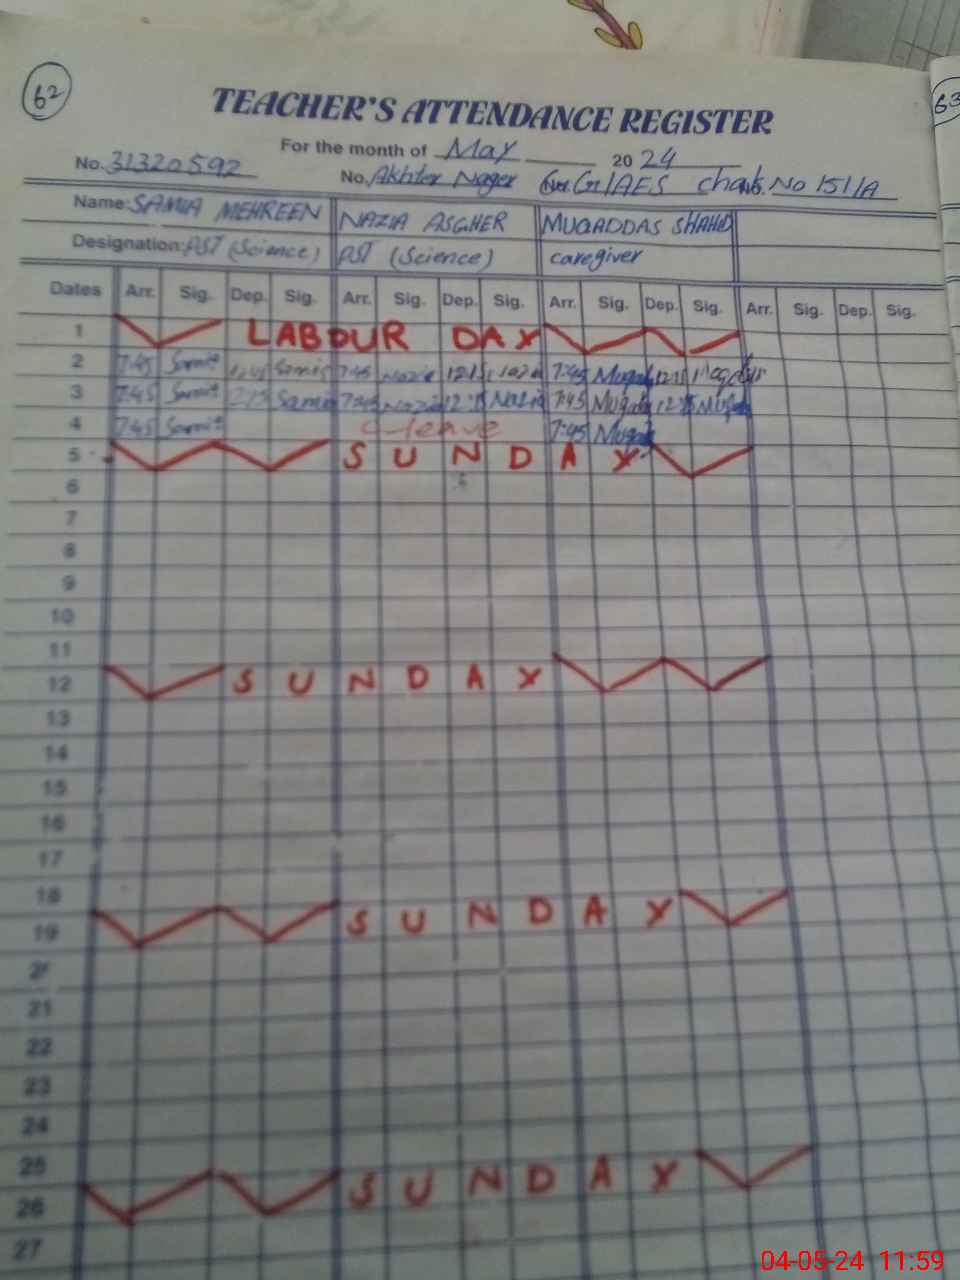 62
63
TEACHER'S ATTENDANCE REGISTER
For the month of May 2024
No. 31320592 No. Akhter Nager AES chak No 151/A
Name: SAMIA MEHREEN NAZIA ASGHER MUQADDAS SHAHID
Designation: PST (Science) PST (Science) caregiver
Dates Arr. Sig. Dep. Sig. Arr. Sig. Dep. Sig. Arr. Sig. Dep. Sig. Arr. Sig. Dep. Sig.
1 LABOUR DAY
2 7:45 Samia Samia 7:45 Nazia 12:15 Nazia 7:45 Muqad 12:15
3 7:45 Samia Samia 7:45 Nazia 12:15 Nazia 7:45 Muqad 12:15 Muqad
4 7:45 Samia leave 7:45 Muqad
5 SUNDAY
6
7
8
9
10
11
12 SUNDAY
13
14
15
16
17
18
19 SUNDAY
21
22
23
24
25
26 SUNDAY
27
04-05-24 11:59